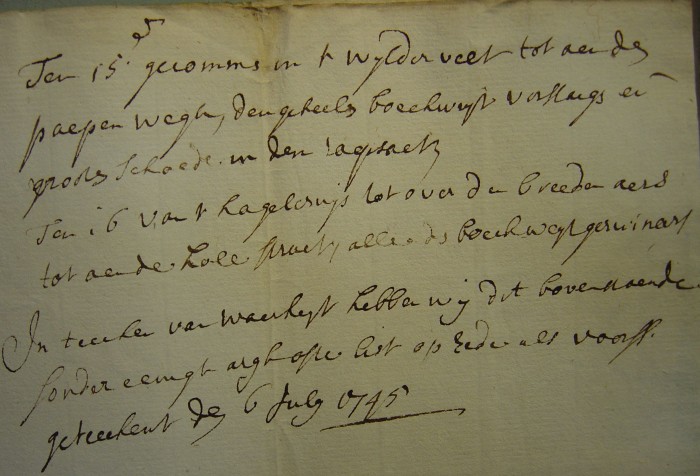 Ten 15e gecomms in t wylderveelt tot aen de
paepen wegh, den geheele boeckweyt verslaegs en
groote schaede in den
Ten 16 van t hagelcruys tot over den breeden aerd
tot aen de hole straet, alle de boeckweyt geruineert
In teecken van waerheyt hebben wij dit bovenstaende
sonder eenigh argh ofte list op rede als voorss.
geteekent den 6 July 1745